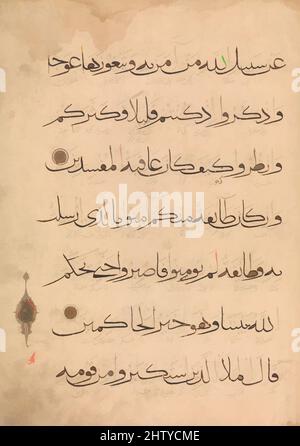 عن سبيل الله من امن به وتبغونها عوجا
واذكروا اذ كنتم قليلا فكثركم
وانظروا كيف كان عاقبة المفسدين
وان كان طائفة منكم امنوا بالذي ارسلت
به وطائفة لم يؤمنوا فاصبروا حتى يحكم
الله بيننا وهو خير الحاكمين
قال الملا الذين استكبروا من قومه
alamy
Image ID: 2HTYCME
www.alamy.com